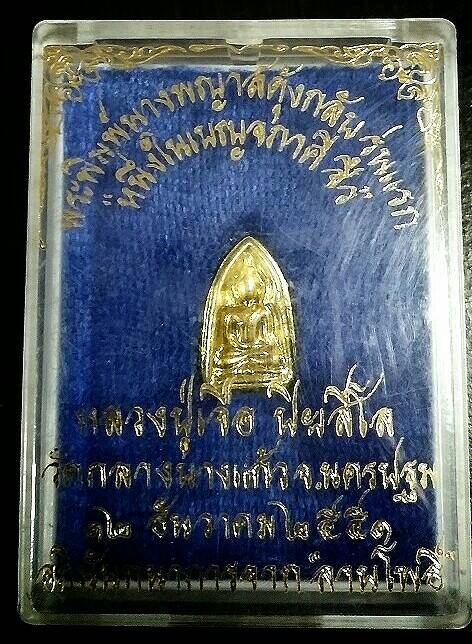 พระพิมพ์นางพญาสะดุ้งกลับ รุ่นแรก
"หนึ่งในเบญจภาคี
หลวงปู่เจือ ปิยสีโล
วัดกลางบางแก้ว จ.นครปฐม
๑๒ ธันวาคม ๒๕๕๑
"ลานโพธิ์"